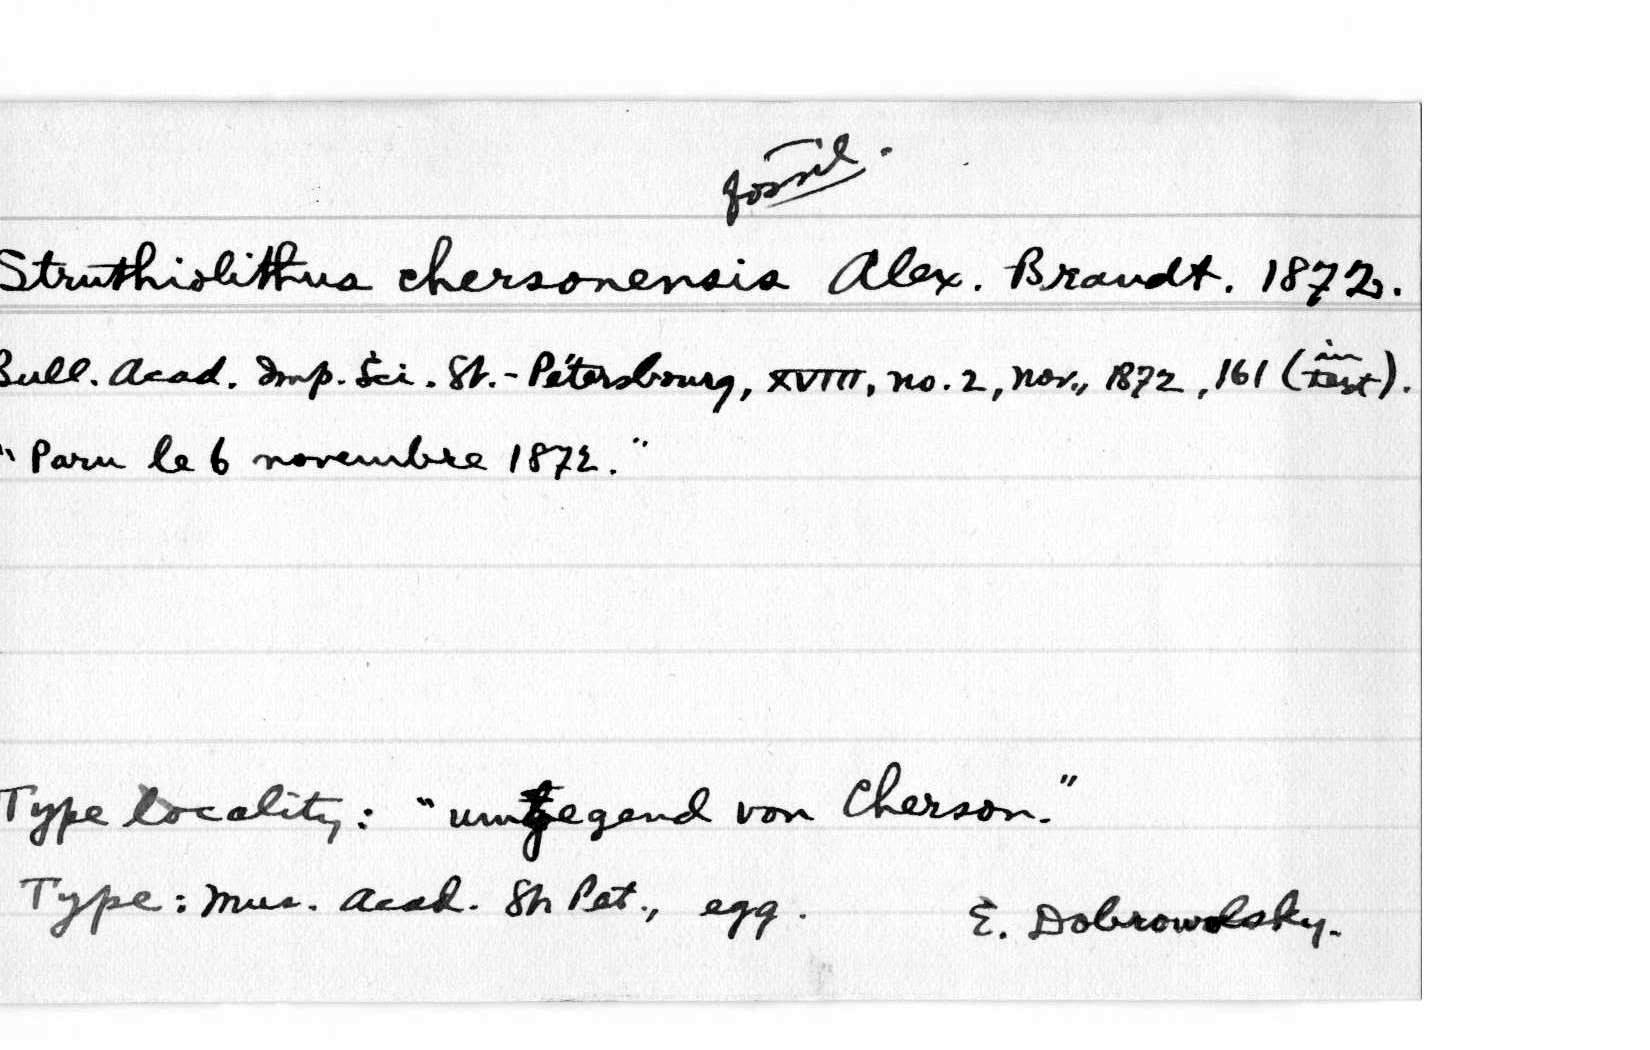 fossil.
Struthiolithus chersonensis Alex. Brandt. 1872.
Bull. Acad. Imp. Sci. St.-Pétersbourg, XVIII, no. 2, Nov., 1872, 161 (in text).
"Paru le 6 novembre 1872."
Type locality: "umgegend von Cherson."
Type: Mus. Acad. St. Pet., egg.
E. Dobrowolsky.